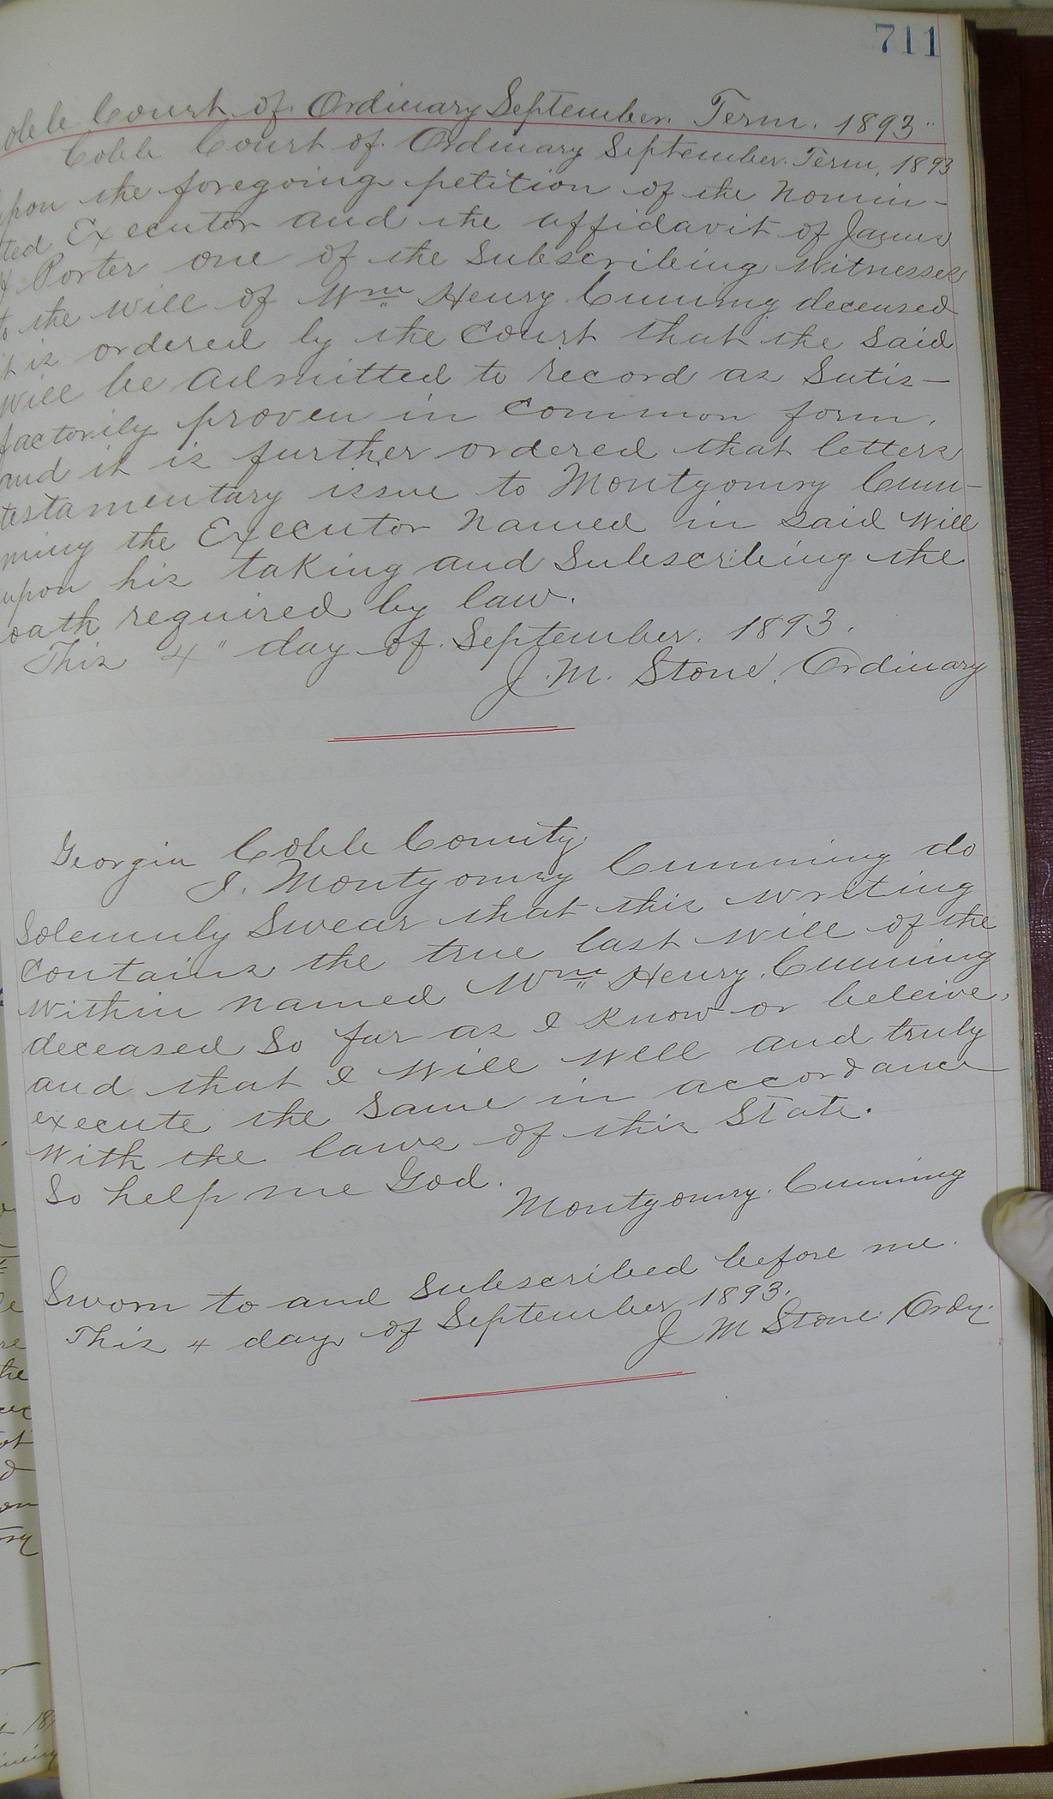 711
Cobb Court of Ordinary September Term. 1893"
Cobb Court of Ordinary September Term, 1893
upon the foregoing petition of the Nomin-
ted Executor and the affidavit of James
Porter one of the Subscribing Witnesses
to the Will of Wm Henry Cuming deceased
it is ordered by the Court that the Said
Will be Admitted to record as Satis-
factorily proven in Common form.
and it is further ordered that letters
testamentary issue to Montgomry Cum-
ming the Executor Named in Said Will
upon his taking and Subscribing the
oath required by law.
This 4" day of September. 1893.
J. M. Stone, Ordinary
Georgia Cobb County
I. Montgomry Cumming do
Solemnly Swear that this writing
Contains the true last Will of the
Within named Wm Henry Cumming
deceased So far as I Know or beleive,
and that I Will Well and truly
execute the Same in accordance
With the laws of this State.
So help me God.
Montgomry Cumming
Sworn to and Subscribed before me.
This 4 day of September 1893.
J M Stone Ordy.